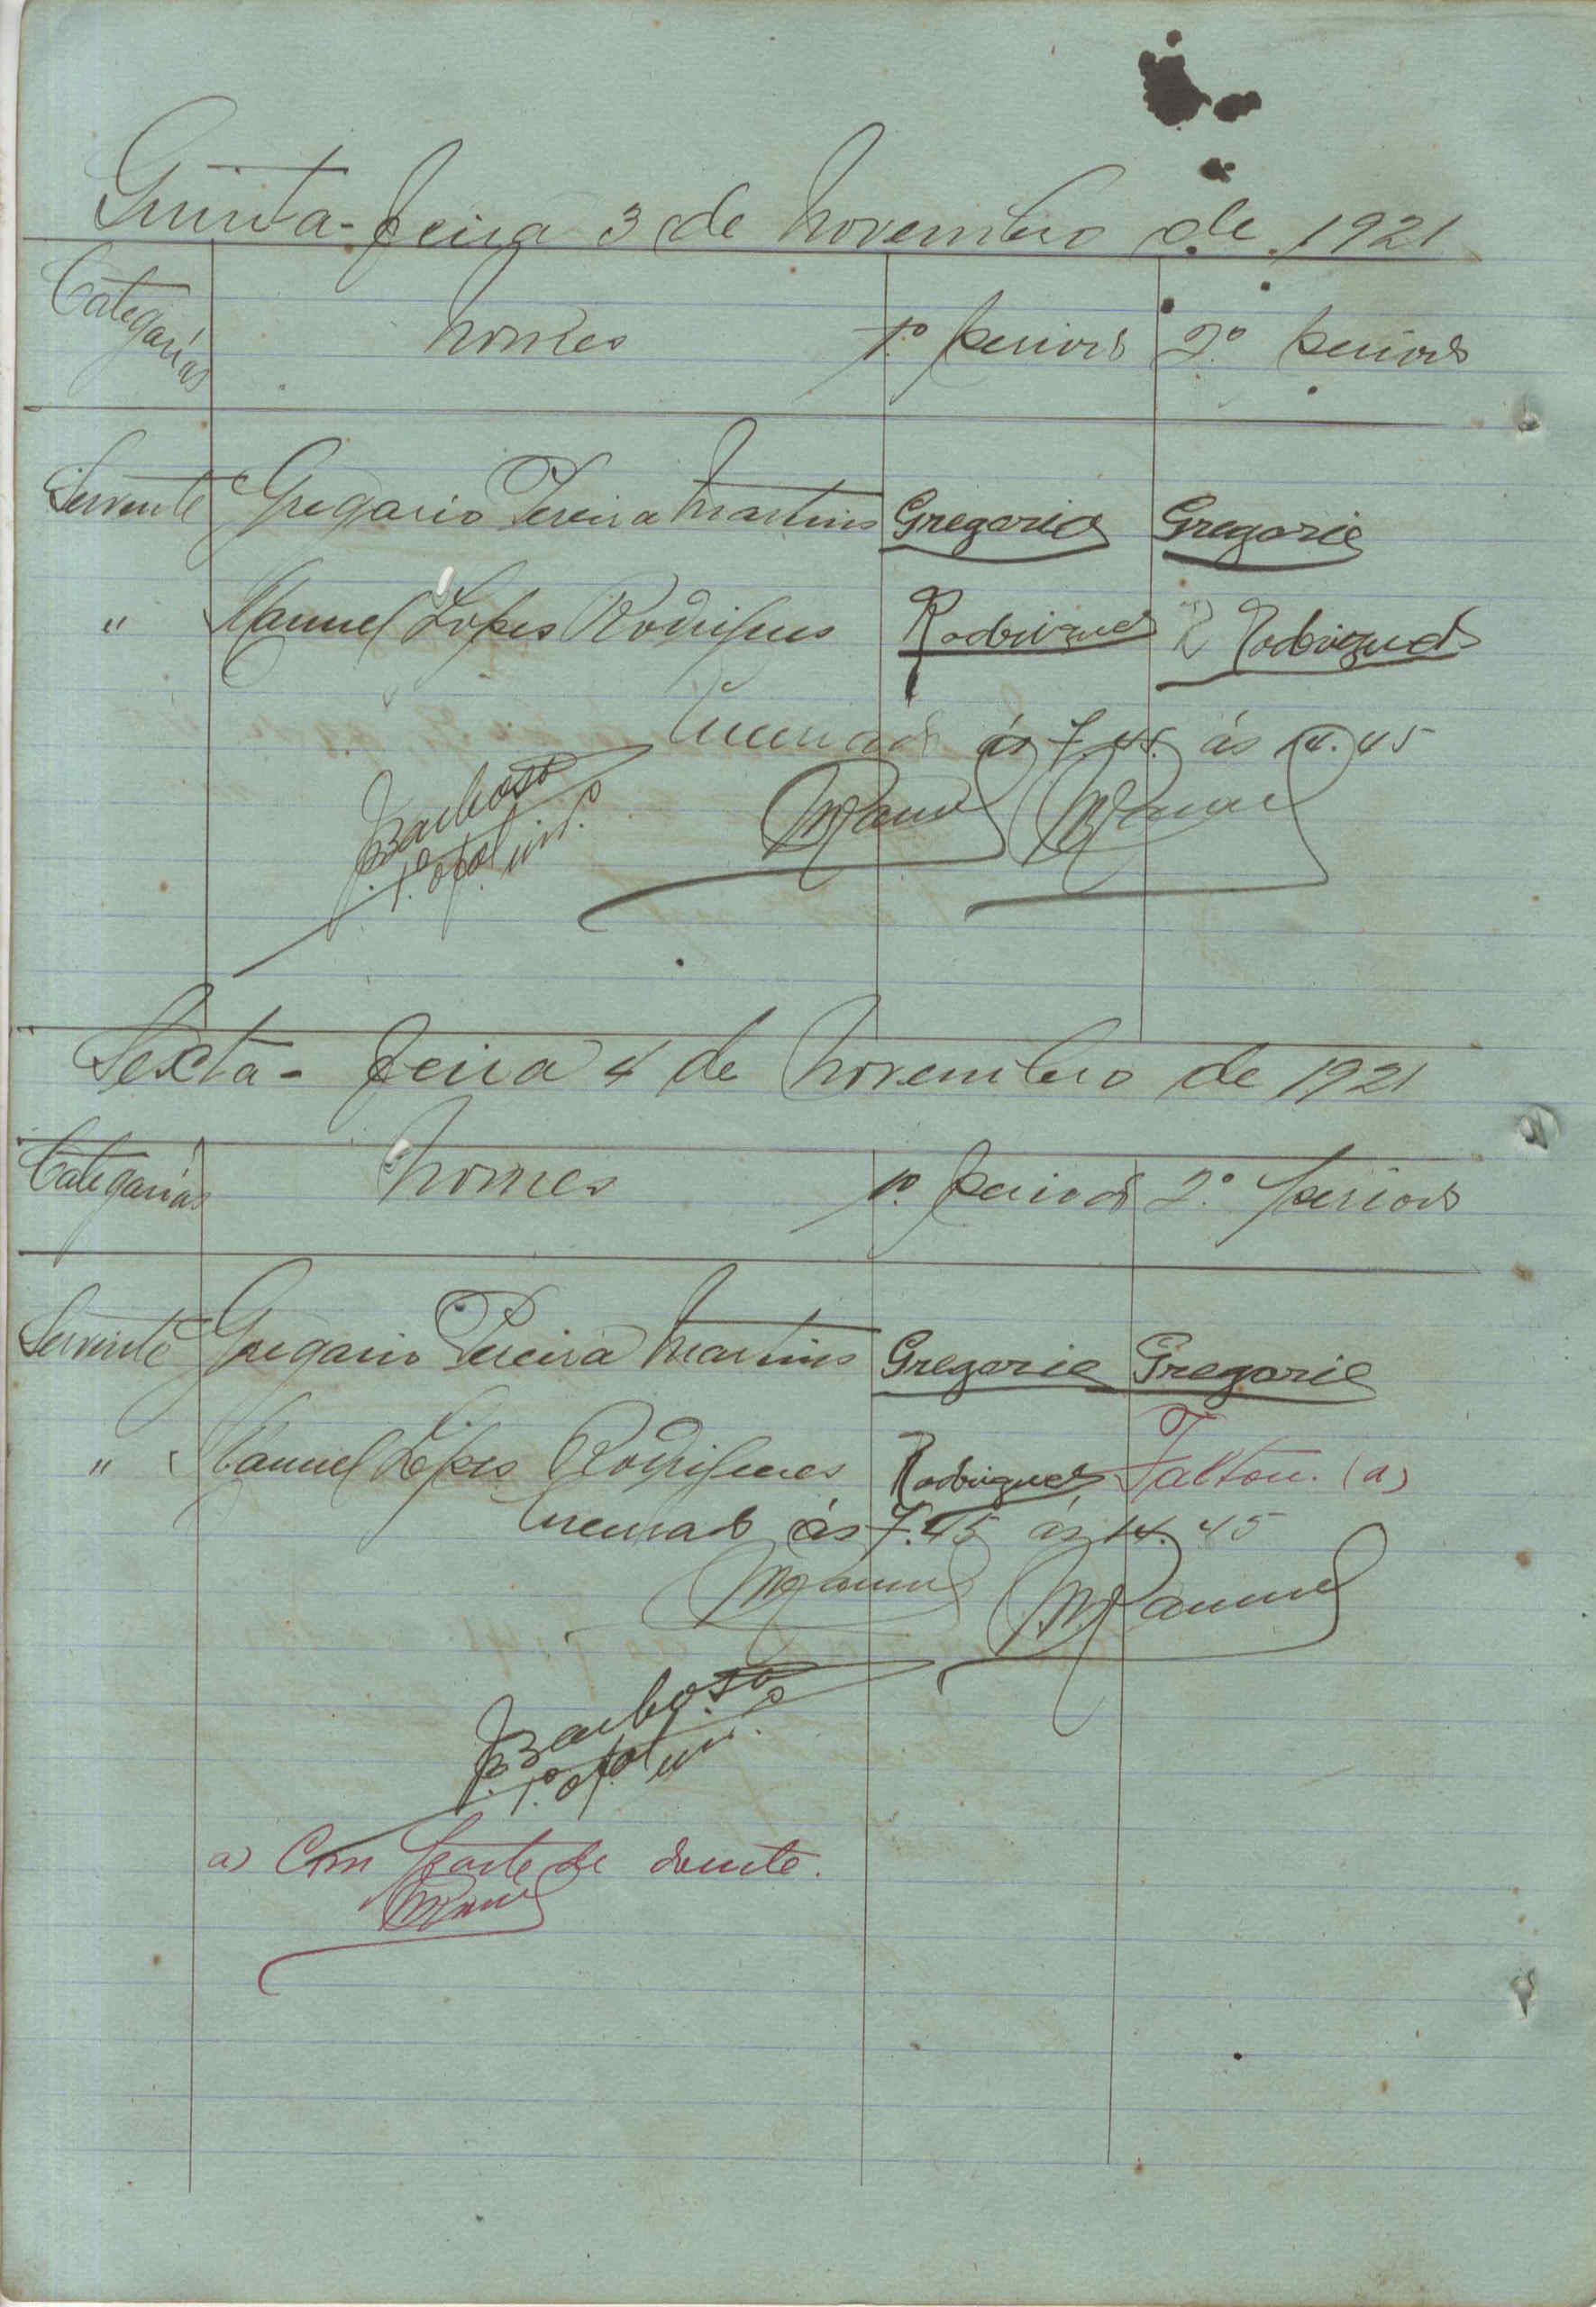 Quinta-feira 3 de Novembro de 1921
Categorias Nomes 1.º periodo 2.º periodo
Servente Gregorio Pereira Martins Gregorio Gregorio
" Manuel Lopes Rodrigues Rodrigues R Rodrigues
Encerrado ás 7.45. ás 14.45
Barbosa
1.º ofal int.º
Sexta-feira 4 de Novembro de 1921
Categorias Nomes 1.º periodo 2.º periodo
Servente Gregorio Pereira Martins Gregorio Gregorio
" Manuel Lopes Rodrigues Rodrigues Faltou. (a)
Encerrado ás 7.45 ás 14.45
Barbosa
1.º ofal int.º
a) Com parte de doente.